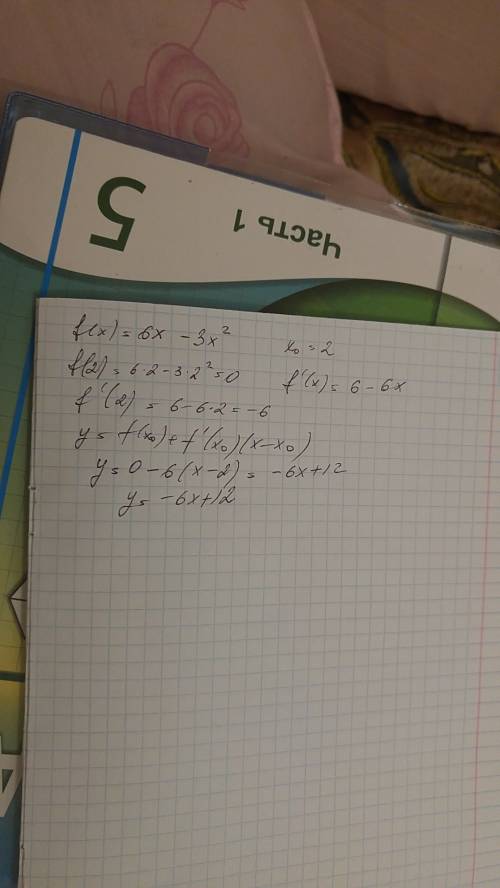 5
Часть 1
f(x) = 6x - 3x² x₀ = 2
f(2) = 6·2 - 3·2² = 0 f'(x) = 6 - 6x
f'(2) = 6 - 6·2 = -6
y = f(x₀) + f'(x₀)(x - x₀)
y = 0 - 6(x - 2) = -6x + 12
y = -6x + 12